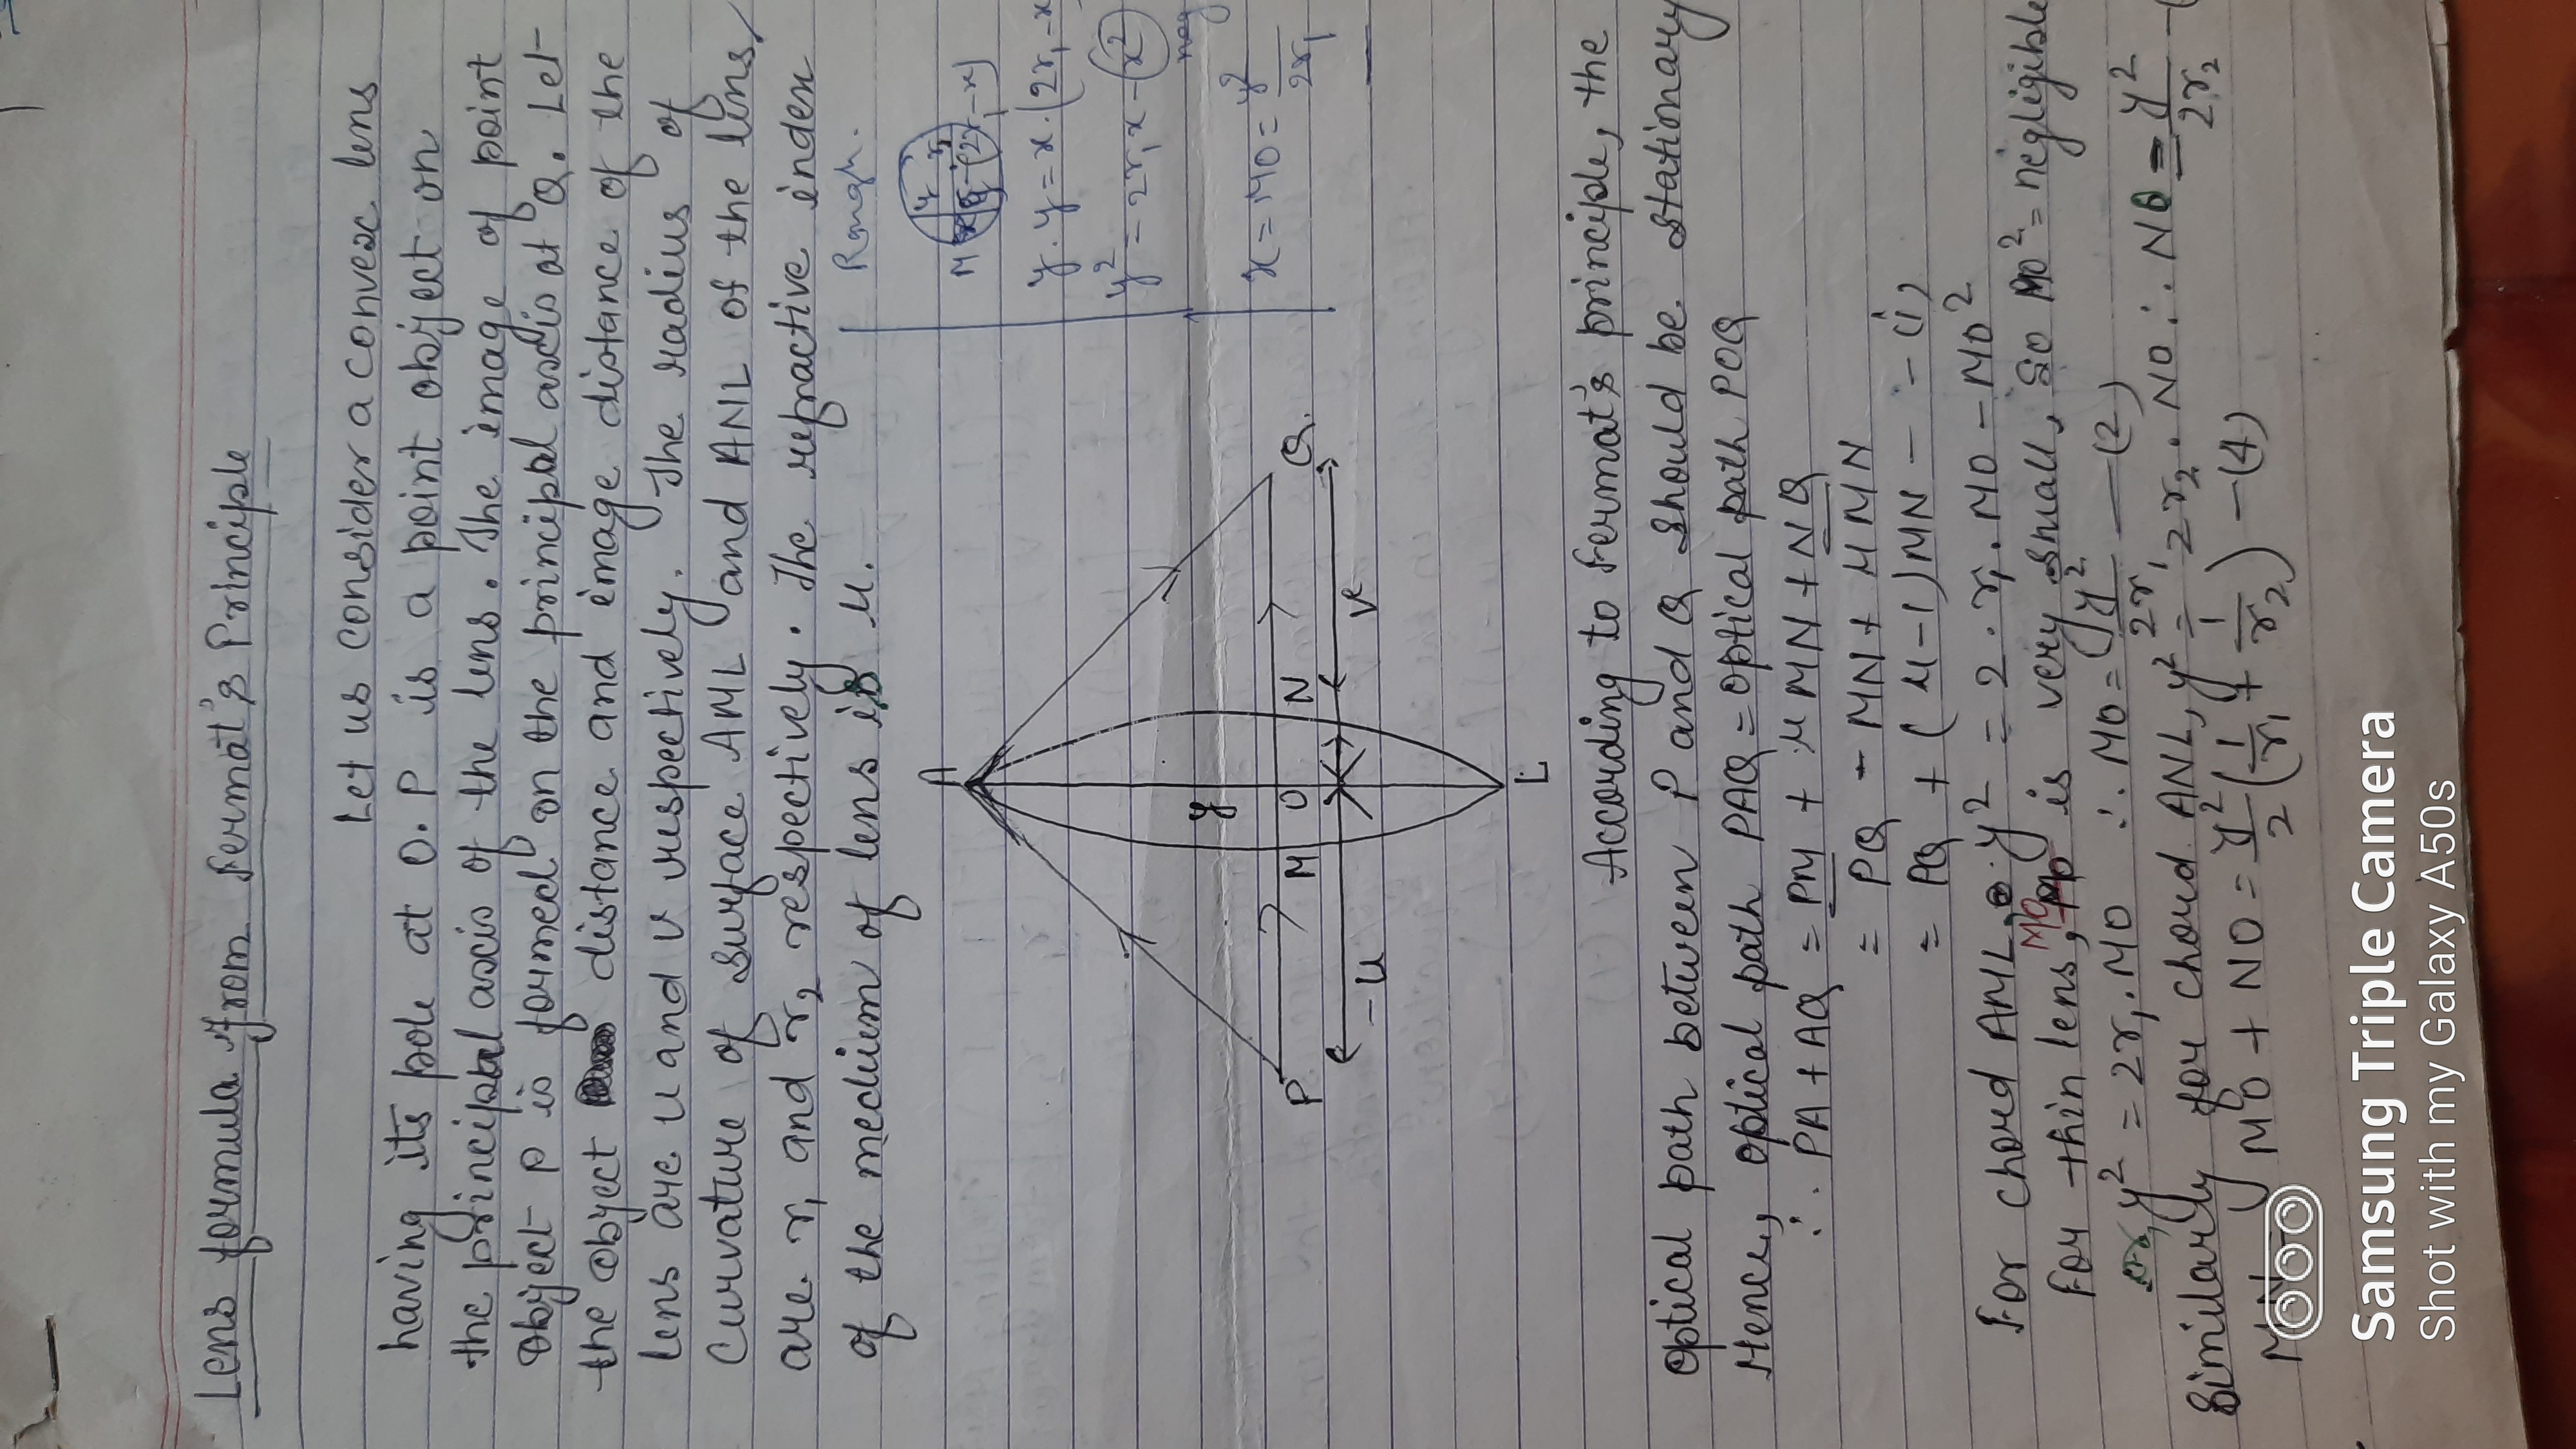 Lens formula from Fermat's Principle
Let us consider a convex lens
having its pole at O. P is a point object on
the principal axis of the lens. The image of point
object P is formed on the principal axis at Q. Let
the object distance and image distance of the
lens are u and v respectively. The radius of
curvature of surface AML and ANL of the lens
are r₁ and r₂ respectively. The refractive index
of the medium of lens is μ.
Rough.
y·y = x·(2r₁-x
y² = 2r₁x - x²
neg
x = MO = y²/2r₁
A
y
P M O N Q
-u v
L
According to Fermat's principle, the
optical path between P and Q should be stationary
Hence, optical path PAQ = optical path POQ
∴ PA + AQ = PM + μMN + NQ
= PQ - MN + μMN
= PQ + (μ-1)MN - - (i)
For chord AML, y² = 2·r₁·MO - MO²
For thin lens, MO is very small, so MO² = negligible
or, y² = 2r₁·MO ∴ MO = y²/2r₁ —(2)
Similarly for chord ANL, y² = 2r₂·NO ∴ NO = y²/2r₂ -(
MN = MO + NO = y²/2 (1/r₁ + 1/r₂) -(4)
Samsung Triple Camera
Shot with my Galaxy A50s